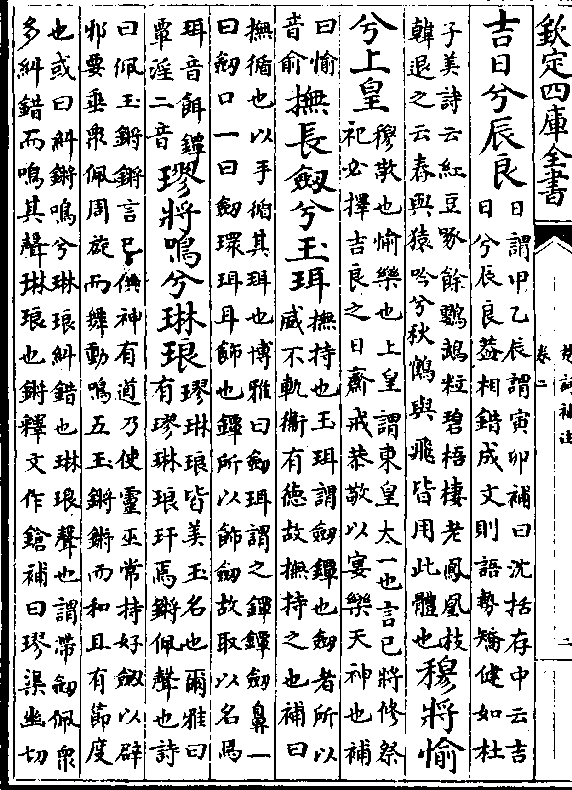 欽定四庫全書
楚詞補注
卷二
二
吉日兮辰良日謂甲乙辰謂寅卯補曰沈括存中云吉
日兮辰良葢相錯成文則語勢矯健如杜
子美詩云紅豆啄餘鸚鵡粒碧梧棲老鳳凰枝
韓退之云春與猿吟兮秋鶴與飛皆用此體也穆將愉
兮上皇穆敬也愉樂也上皇謂東皇太一也言已將修祭
祀必擇吉良之日齋戒恭敬以宴樂天神也補
曰愉
音俞撫長劔兮玉珥撫持也玉珥謂劔鐔也劔者所以
威不軌衛有德故撫持之也補曰
撫循也以手循其珥也博雅曰劔珥謂之鐔鐔劔鼻一
曰劔口一曰劔環珥耳飾也鐔所以飾劔故取以名焉
珥音餌鐔
覃淫二音璆鏘鳴兮琳琅璆琳琅皆美玉名也爾雅曰
有璆琳琅玕焉鏘佩聲也詩
曰佩玉鏘鏘言已供神有道乃使靈巫常持好劔以辟
邪要垂衆佩周旋而舞動鳴五玉鏘鏘而和且有節度
也或曰糾鏘鳴兮琳琅糾錯也琳琅聲也謂帶劔佩衆
多糾錯而鳴其聲琳琅也鏘釋文作鎗補曰璆渠幽切